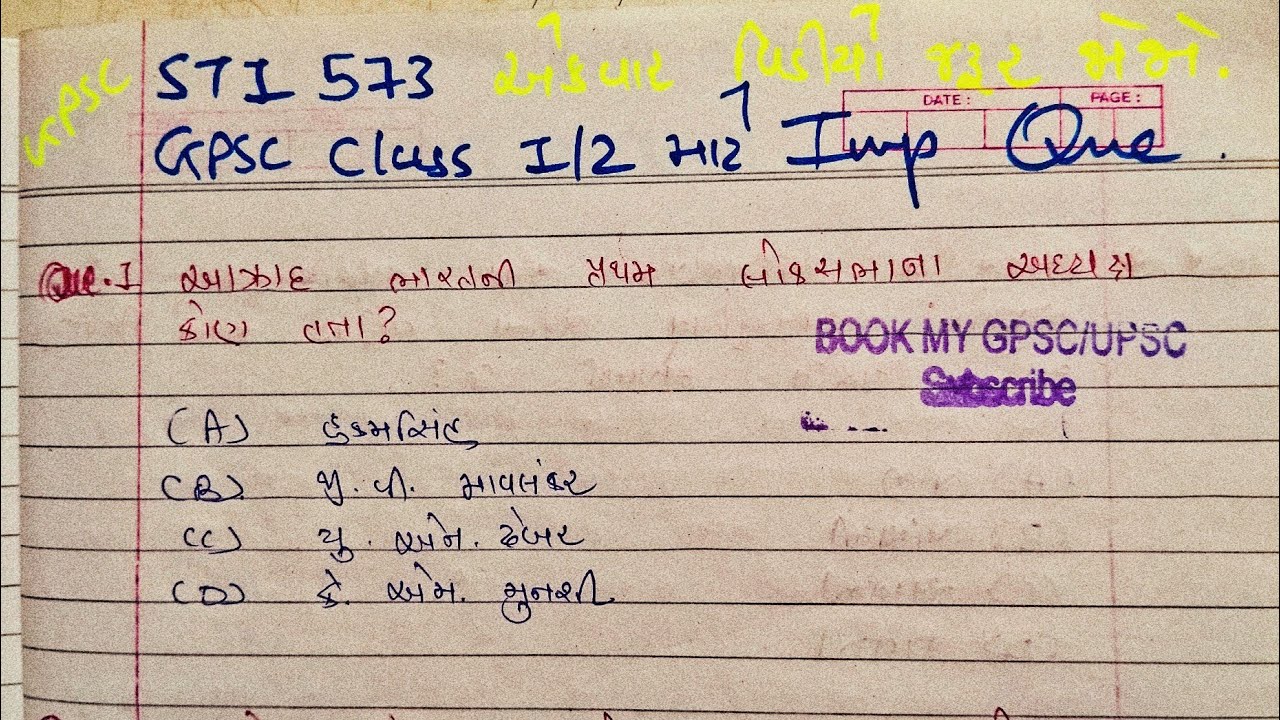 GPSC
STI 573 એકવાર વિડીયો જરૂર જોજો.
DATE: PAGE:
GPSC Class I/2 માટે Imp Que.
Que.I આઝાદ ભારતની પ્રથમ લોકસભાના અધ્યક્ષ
કોણ હતા?
BOOK MY GPSC/UPSC
Subscribe
(A) હુકમસિંહ
(B) જી. વી. માવલંકર
(C) યુ. એન. ઢેબર
(D) કે. એમ. મુનશી.